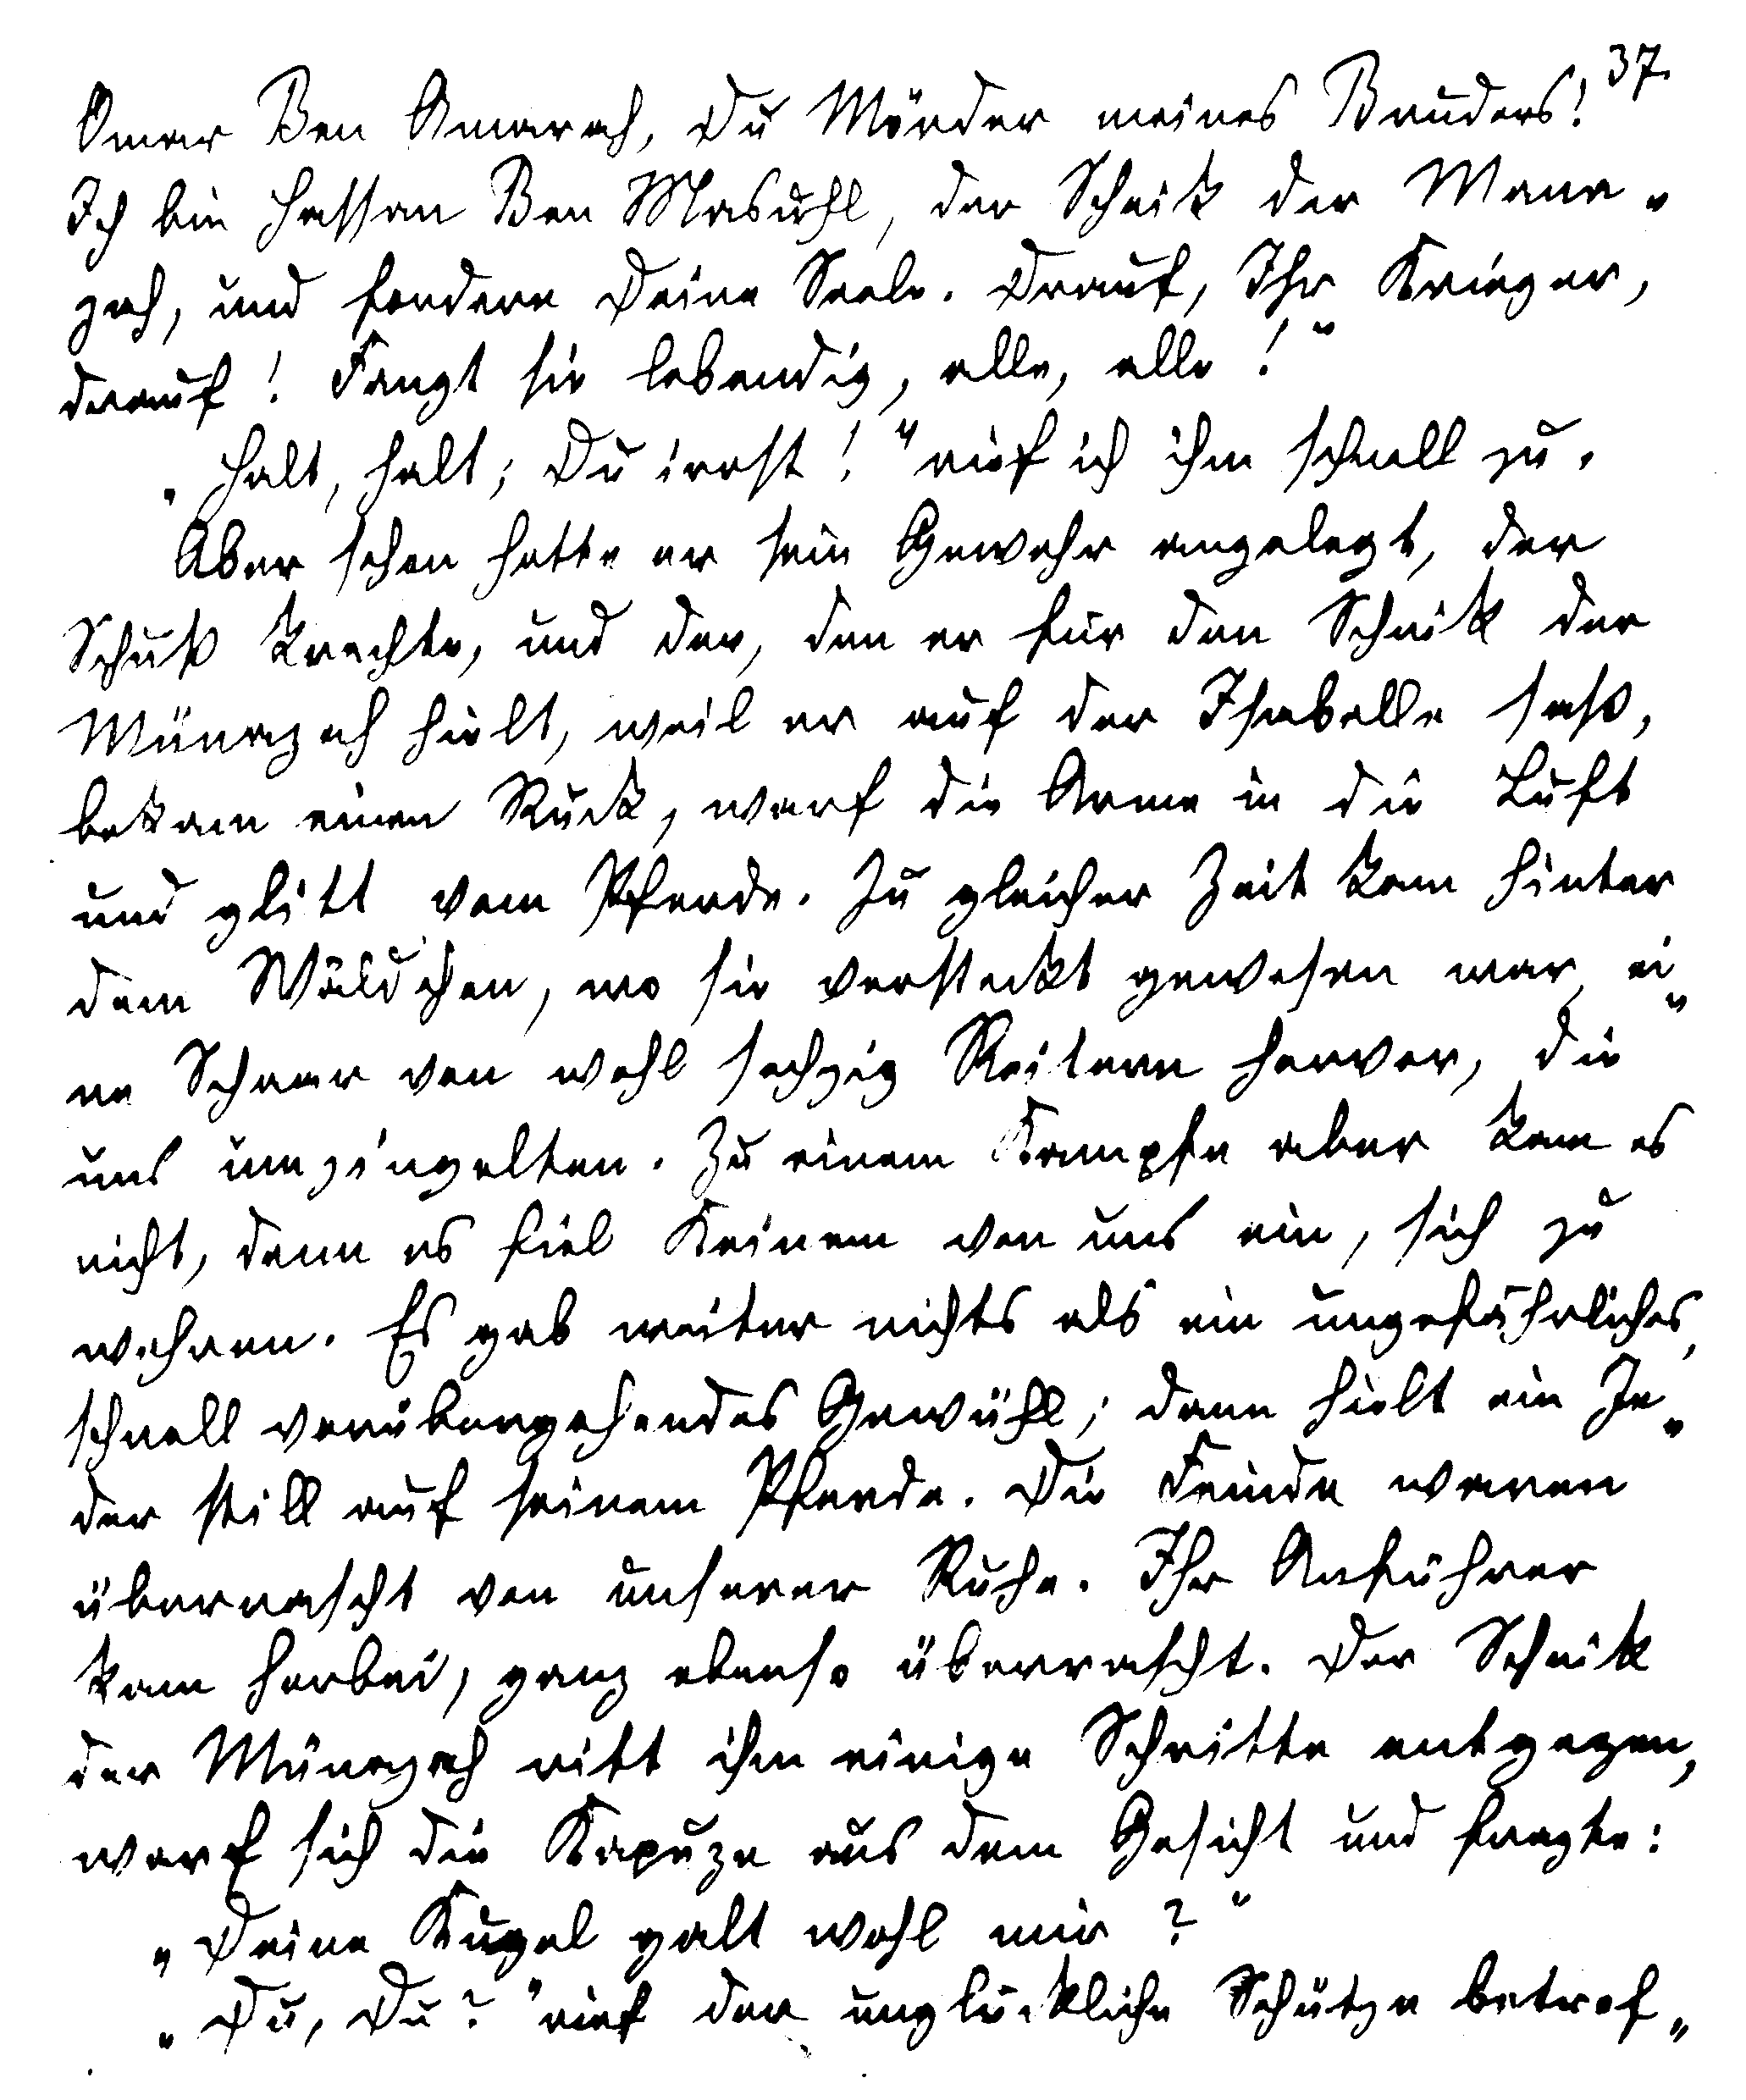 37.
Omar Ben Amarah, Du Mörder meines Bruders!
Ich bin Hassan Ben Masuhl, der Scheik der Mana-
zah, und fordere Deine Seele. Drauf, Ihr Krieger,
drauf! Fangt sie lebendig, alle, alle!"
"Halt, halt; Du irrst!" rief ich ihm schnell zu.
Aber schon hatte er sein Gewehr angelegt, der
Schuß krachte, und der, den er für den Scheik der
Münazah hielt, weil er auf der Isabelle saß,
bekam einen Ruck, warf die Arme in die Luft
und glitt vom Pferde. Zu gleicher Zeit kam hinter
dem Wäldchen, wo sie versteckt gewesen war, ei-
ne Schaar von wohl sechzig Reitern hervor, die
uns umzingelten. Zu einem Kampfe aber kam es
nicht, denn es fiel Keinem von uns ein, sich zu
wehren. Es gab weiter nichts als ein ungefährliches,
schnell vorübergehendes Gewühl; dann hielt ein Je-
der still auf seinem Pferde. Die Feinde waren
überrascht von unserer Ruhe. Ihr Anführer
kam herbei, ganz ebenso überrascht. Der Scheik
der Münazah ritt ihm einige Schritte entgegen,
warf sich die Kapuze aus dem Gesicht und fragte:
"Deine Kugel galt wohl mir?"
"Du, Du?" rief der unglückliche Schütze betrof-